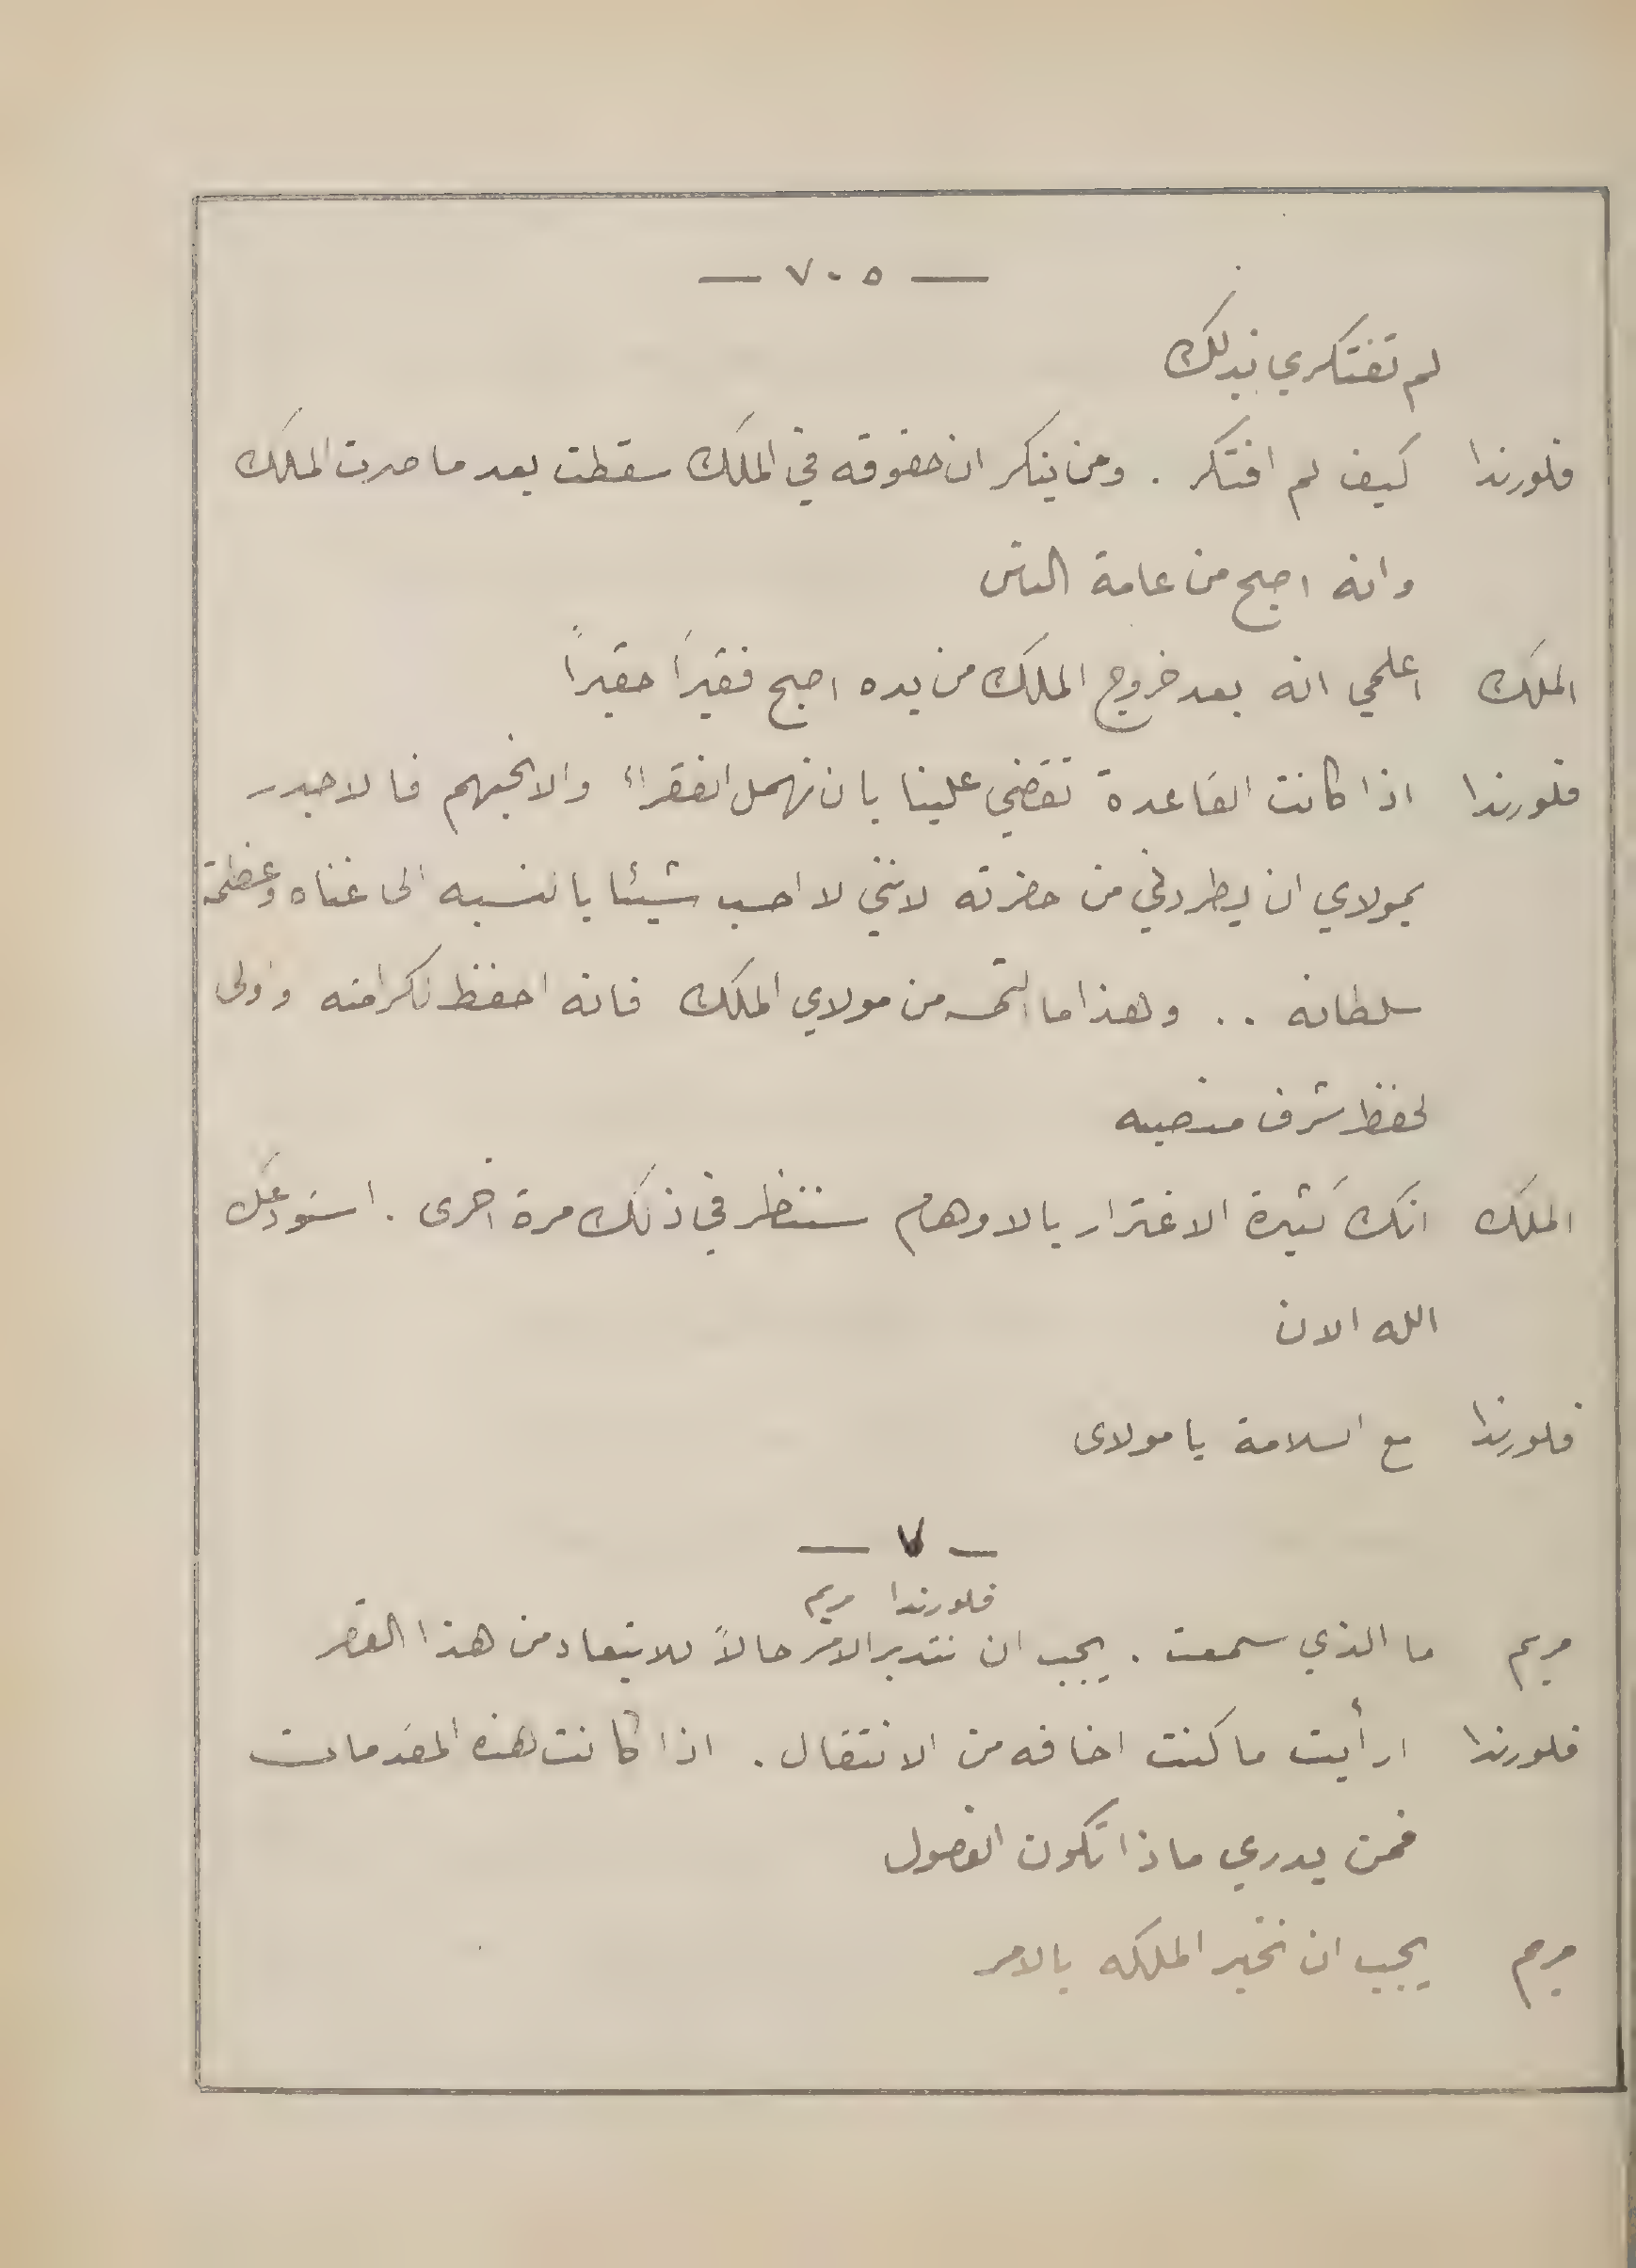 — ٧٠٥ —
لم تفتكري بذلك
فلورندا كيف لم افتكر . ومن ينكر ان حقوقه في الملك سقطت بعد ما صرت الملك
وانه اصبح من عامة الناس
الملك اعلمي انه بعد خروج الملك من يده اصبح فقيراً حقيراً
فلورندا اذا كانت القاعدة تقضي علينا بان نهمل الفقراء والا نحبهم فالاجدر
بمولاي ان يطردني من حضرته لانني لا احسب شيئا بالنسبه الى غناه وعظمة
سلطانه .. وهذا ما التمسه من مولاي الملك فانه احفظ لكرامته واولى
لحفظ شرف منصبه
الملك انك كثيرة الاغترار بالاوهام سننظر في ذلك مرة اخرى . استودعك
الله الان
فلورندا مع السلامة يا مولاى
— ٧ —
فلورندا مريم
مريم ما الذي سمعت . يجب ان نتدبر الامر حالاً للابتعاد من هذا القصر
فلورندا ارأيت ما كنت اخافه من الانتقال . اذا كانت هذه المقدمات
فمن يدري ماذا تكون الفصول
مريم يجب ان نخبر الملكه بالامر